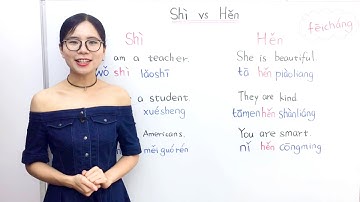 Shì vs Hěn
fēicháng
Shì
am a teacher.
wǒ shì lǎoshī
a student.
xuésheng
Americans.
měiguórén
Hěn
She is beautiful
tā hěn piàoliang
They are kind.
tāmen hěn shànliáng
You are smart.
nǐ hěn cōngmíng